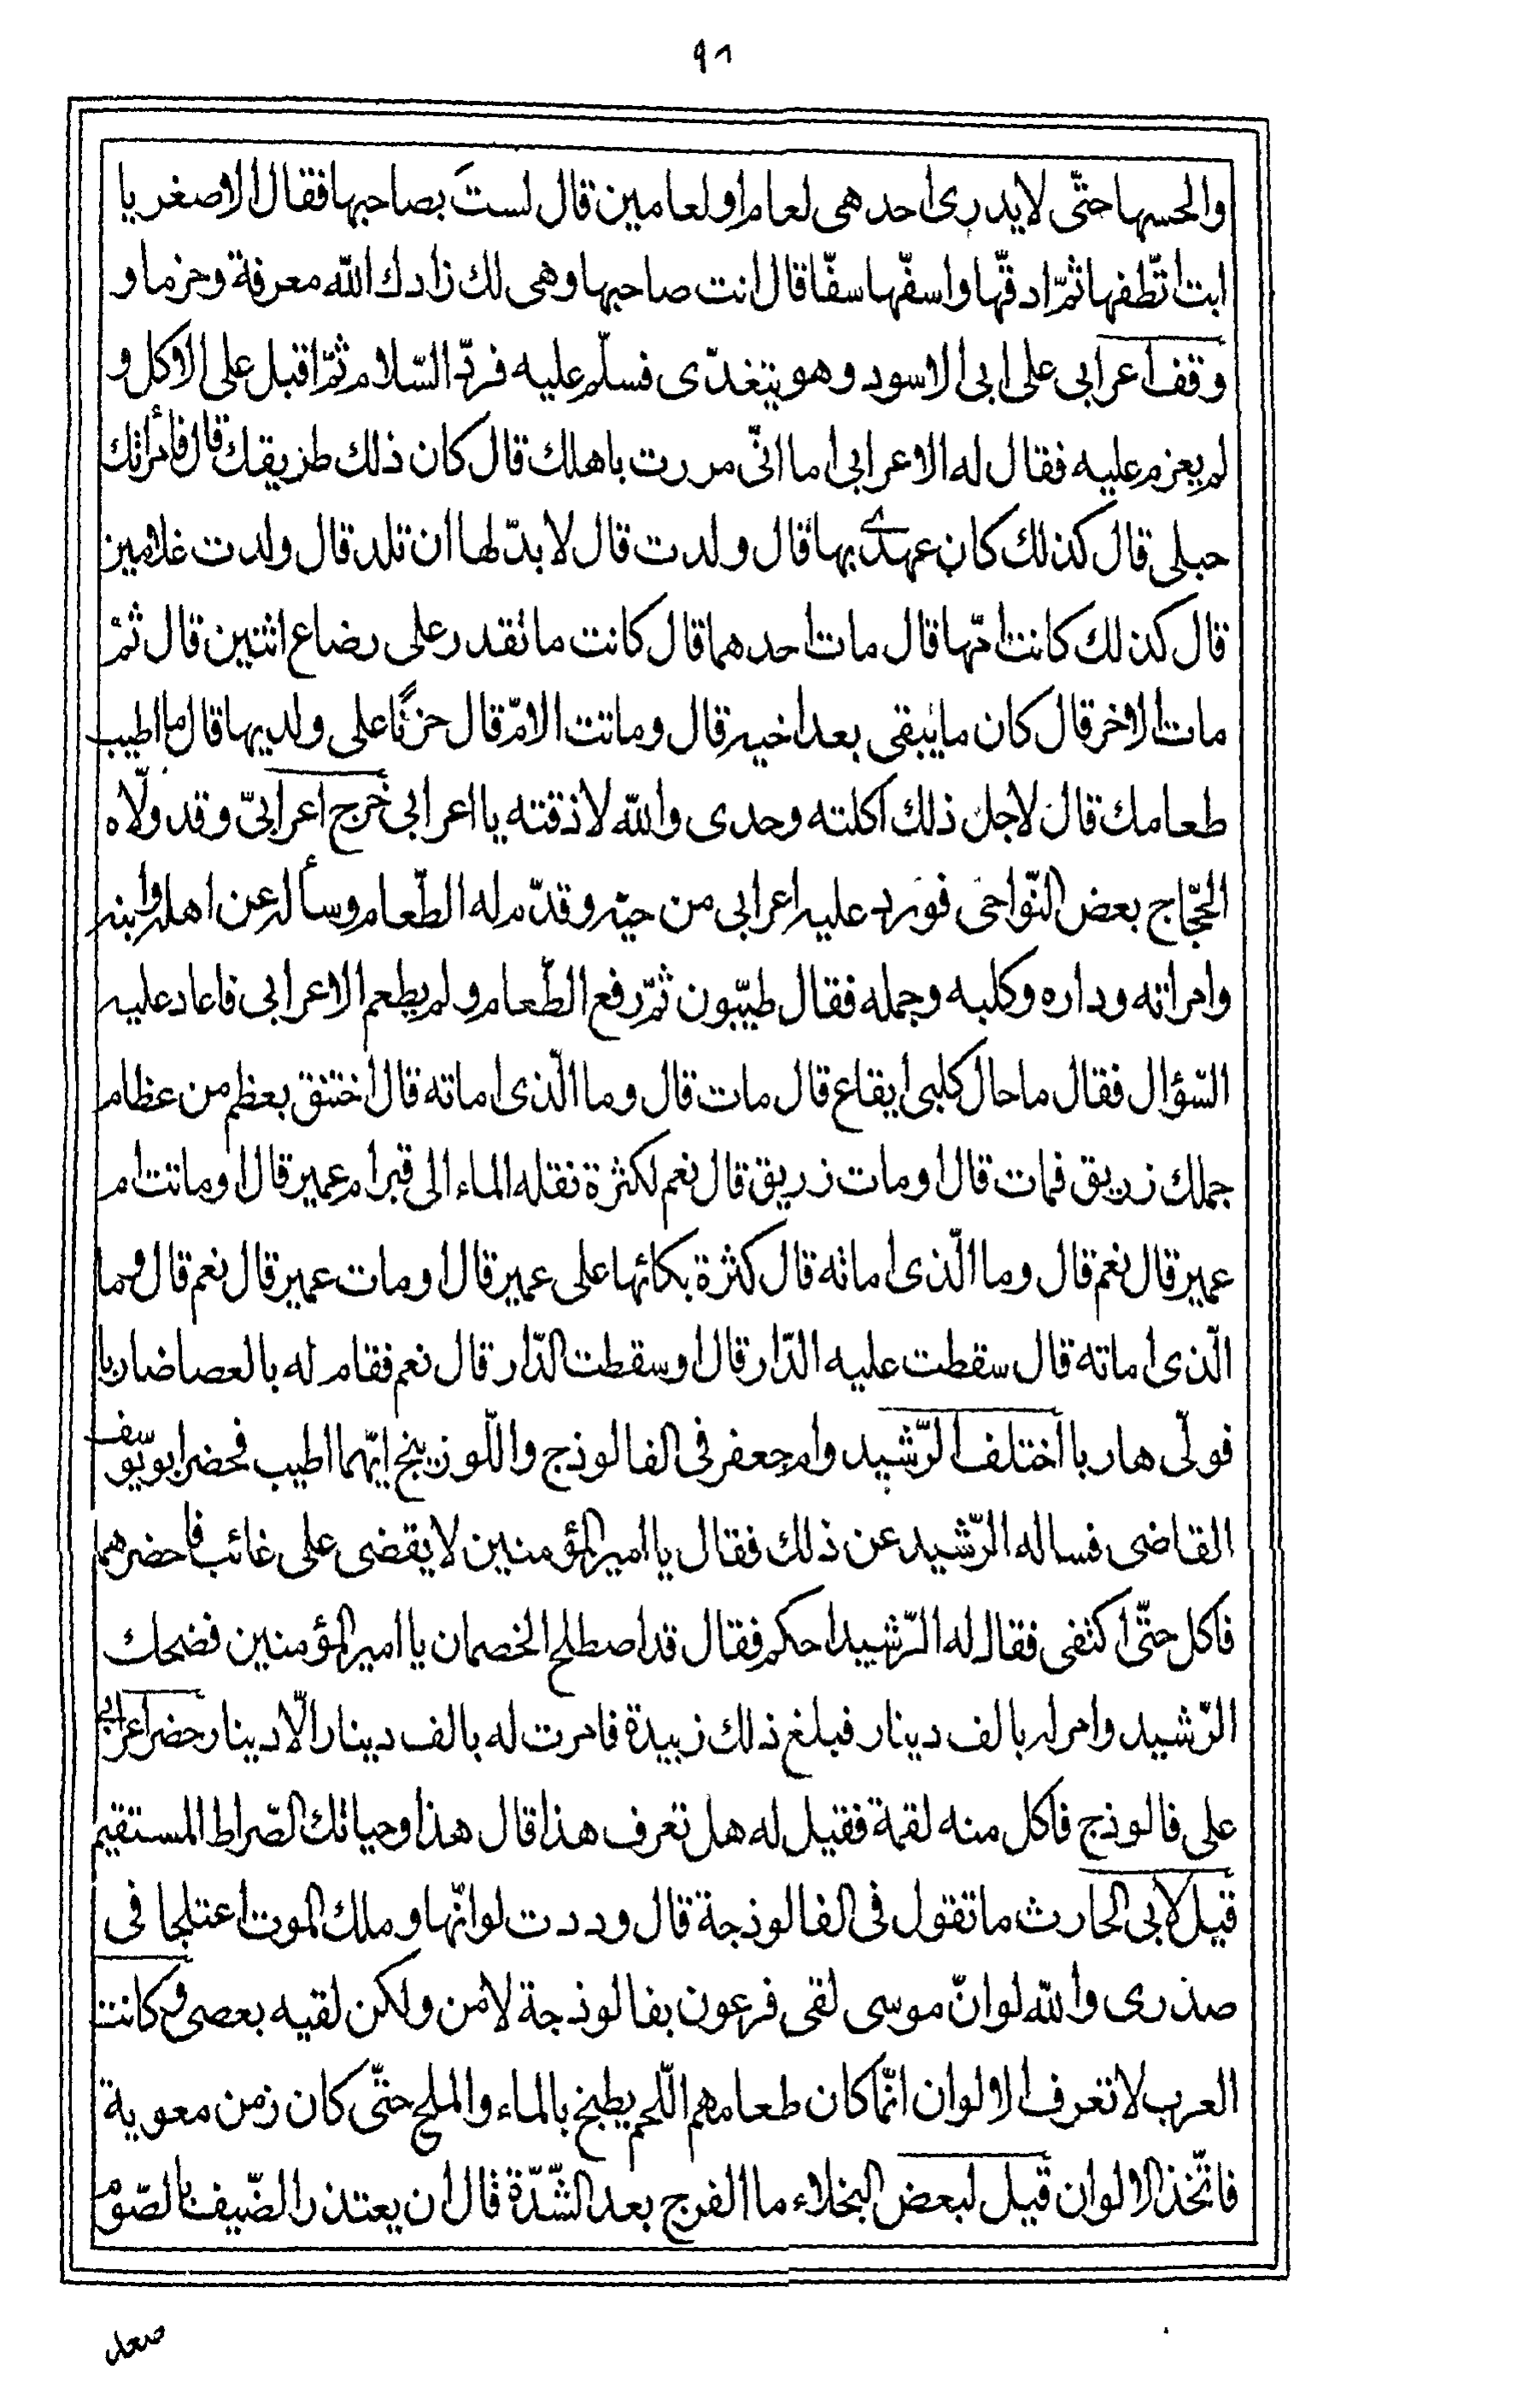 ٩٨
والحسها حتّى لا يدرى احد هى لعام او لعامين قال لستَ بصاحبها فقال الاصغر يا
ابت اتّطفها ثمّ ادقّها واسفّها سفّا قال انت صاحبها وهى لك زادك الله معرفة وحزما و
وقف اعرابى على ابى الاسود وهو يتغدّى فسلّم عليه فردّ السّلام ثمّ اقبل على الاكل و
لم يعزم عليه فقال له الاعرابى اما انّى مررت باهلك قال كان ذلك طريقك قال فأمرأتك
حبلى قال كذلك كان عهدى بها قال ولدت قال لا بدّ لها ان تلد قال ولدت غلامين
قال كذلك كانت امّها قال مات احدهما قال كانت ما تقدر على رضاع اثنين قال ثمّ
مات الاخر قال كان ما يبقى بعد اخيه قال وماتت الامّ قال حزنًا على ولديها قال ما اطيب
طعامك قال لاجل ذلك اكلته وحدى والله لا ذقته يا اعرابى خرج اعرابىّ وقد ولّاه
الحجّاج بعض النّواحى فورد عليه اعرابى من حيّه وقدّم له الطّعام وسأله عن اهله وابنه
وامراته وداره وكلبه وجمله فقال طيّبون ثمّ رفع الطّعام ولم يطعم الاعرابى فاعاد عليه
السّؤال فقال ما حال كلبى ايقاع قال مات قال وما الّذى اماته قال اختنق بعظم من عظام
جملك زريق فمات قال اومات زريق قال نعم لكثرة نقله الماء الى قبر ام عمير قال اوماتت ام
عمير قال نعم قال وما الّذى اماته قال كثرة بكائها على عمير قال اومات عمير قال نعم قال وما
الّذى اماته قال سقطت عليه الدّار قال اوسقطت الدّار قال نعم فقام له بالعصا ضاربا
فولّى هاربا اختلف الرّشيد وام جعفر فى الفالوذج واللّوزينج ايّهما اطيب فحضر ابو يوسف
القاضى فساله الرّشيد عن ذلك فقال يا امير المؤمنين لا يقضى على غائب فاحضرهما
فاكل حتّى اكتفى فقال له الرّشيد احكم فقال قد اصطلح الخصمان يا امير المؤمنين فضحك
الرّشيد وامر له بالف دينار فبلغ ذلك زبيدة فامرت له بالف دينار الّا دينار حضر اعرابى
على فالوذج فاكل منه لقمة فقيل له هل تعرف هذا قال هذا وحياتك الصّراط المستقيم
قيل لابى الحارث ما تقول فى الفالوذجة قال وددت لو انّها وملك الموت اعتلجا فى
صدرى والله لو انّ موسى لقى فرعون بفالوذجة لامن ولكن لقيه بعصى وكانت
العرب لا تعرف الالوان انّما كان طعامهم اللّحم يطبخ بالماء والملح حتّى كان زمن معوية
فاتّخذ الالوان قيل لبعض البخلاء ما الفرج بعد الشّدّة قال ان يعتذر الضّيف بالصّوم